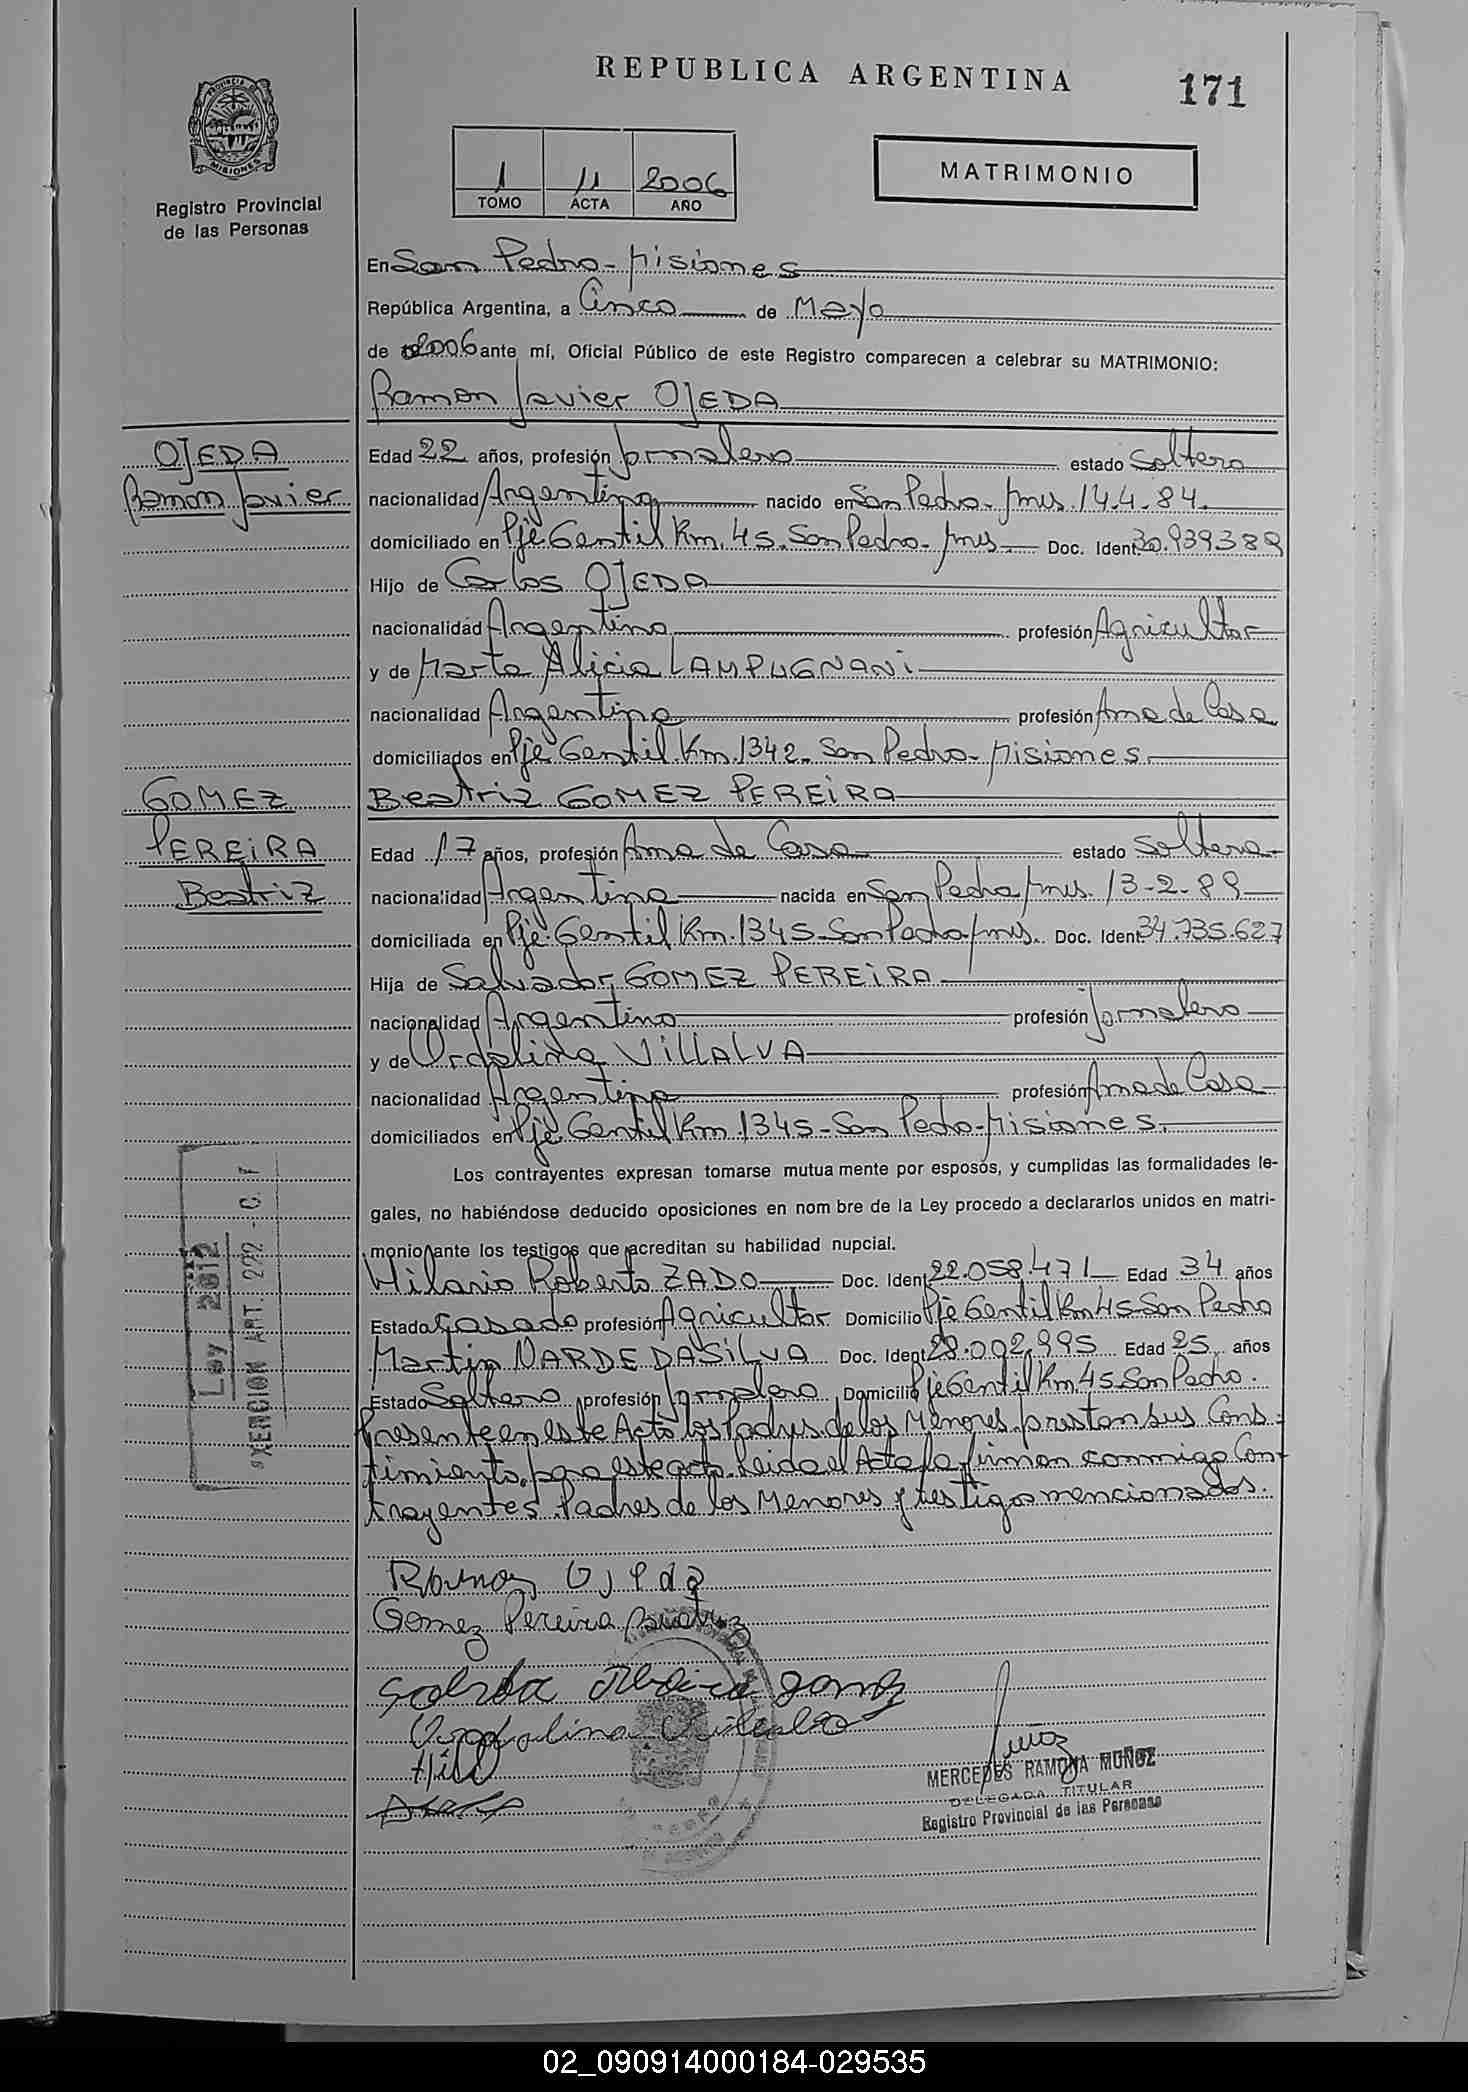 REPUBLICA ARGENTINA
171
PROVINCIA DE
MISIONES
Registro Provincial
de las Personas
1 11 2006
TOMO ACTA AÑO
MATRIMONIO
En San Pedro - Misiones
República Argentina, a Cinco de Mayo
de 2006 ante mí, Oficial Público de este Registro comparecen a celebrar su MATRIMONIO:
Ramon Javier OJEDA
OJEDA
Ramon Javier
Edad 22 años, profesión Jornalero estado Soltero
nacionalidad Argentino nacido en San Pedro - Mnes. 14.4.84.
domiciliado en Pje Gentil Km. 45. San Pedro - Mnes. Doc. Ident. 30.939.389
Hijo de Carlos OJEDA
nacionalidad Argentino profesión Agricultor
y de Marta Alicia LAMPUGNANI
nacionalidad Argentina profesión Ama de Casa
domiciliados en Pje Gentil Km. 1342. San Pedro - Misiones
GOMEZ
PEREIRA
Beatriz
Beatriz GOMEZ PEREIRA
Edad 17 años, profesión Ama de Casa estado Soltera
nacionalidad Argentina nacida en San Pedro Mnes. 13-2-89
domiciliada en Pje Gentil Km. 1345 - San Pedro Mnes. Doc. Ident. 34.735.627
Hija de Salvador GOMEZ PEREIRA
nacionalidad Argentino profesión Jornalero
y de Ordolina VILLALVA
nacionalidad Argentina profesión Ama de Casa
domiciliados en Pje Gentil Km. 1345 - San Pedro - Misiones.
Los contrayentes expresan tomarse mutua mente por esposos, y cumplidas las formalidades le-
gales, no habiéndose deducido oposiciones en nom bre de la Ley procedo a declararlos unidos en matri-
monio ante los testigos que acreditan su habilidad nupcial.
Hilario Roberto ZADO Doc. Ident. 22.058.471 Edad 34 años
Estado Casado profesión Agricultor Domicilio Pje Gentil Km 45 San Pedro
Martin NARDE DASILVA Doc. Ident. 28.002.995 Edad 25 años
Estado Soltero profesión Jornalero Domicilio Pje Gentil Km. 45 San Pedro.
Presente en este Acto los Padres de los Menores prestan sus Cons-
timiento para este acto. Leida el Acta la firman conmigo Con-
trayentes, Padres de los Menores y testigos mencionados.
Ley 2012
EXENCION ART. 222 - C. F
Ramon Ojeda
Gomez Pereira Beatriz
MERCEDES RAMONA MUÑOZ
DELEGADA TITULAR
Registro Provincial de las Personas
02_090914000184-029535